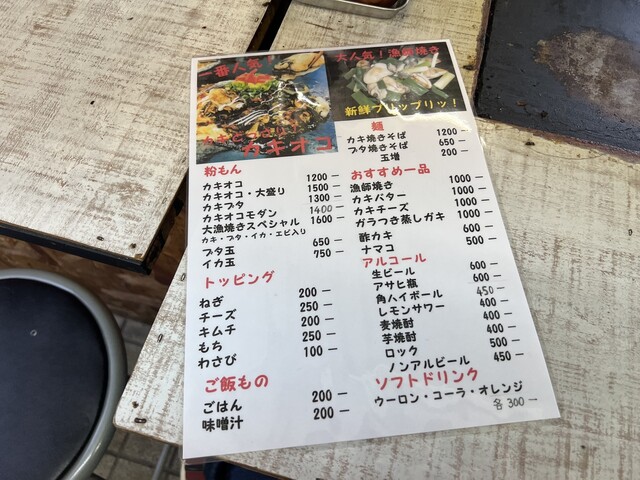 一番人気！
カキオコ
大人気！漁師焼き
新鮮プリップリッ！
粉もん
カキオコ 1200 ー
カキオコ・大盛り 1500 ー
カキブタ 1300 ー
カキオコモダン 1400 ー
大漁焼きスペシャル 1600 ー
カキ・ブタ・イカ・エビ入り
ブタ玉 650 ー
イカ玉 750 ー
トッピング
ねぎ 200 ー
チーズ 250 ー
キムチ 200 ー
もち 250 ー
わさび 100 ー
ご飯もの
ごはん 200 ー
味噌汁 200 ー
麺
カキ焼きそば 1200 ー
ブタ焼きそば 650 ー
玉増 200 ー
おすすめ一品
漁師焼き 1000 ー
カキバター 1000 ー
カキチーズ 1000 ー
ガラつき蒸しガキ 1000 ー
酢カキ 600 ー
ナマコ 500 ー
アルコール
生ビール 600 ー
アサヒ瓶 600 ー
角ハイボール 450 ー
レモンサワー 400 ー
麦焼酎 400 ー
芋焼酎 400 ー
ロック 500 ー
ノンアルビール 450 ー
ソフトドリンク
ウーロン・コーラ・オレンジ
各 300 ー